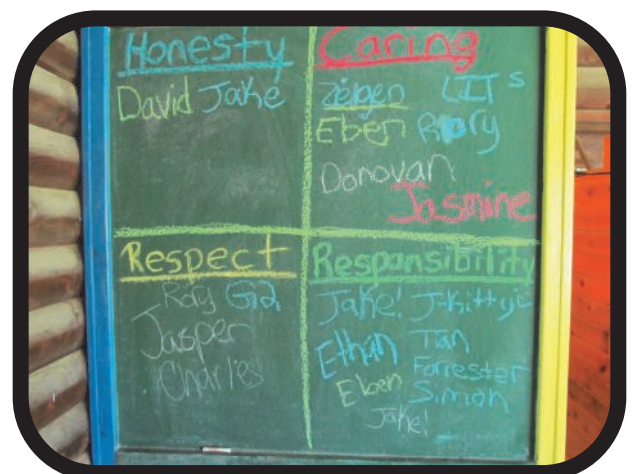 Honesty
David Jake
Caring
Zeigen LIT s
Eben Rory
Donovan
Jasmine
Respect
Rory Gia
Jasper
Charlies
Responsibility
Jake! J-Kitty
Ethan Tian
Forrester
Eben Simon
Jake!